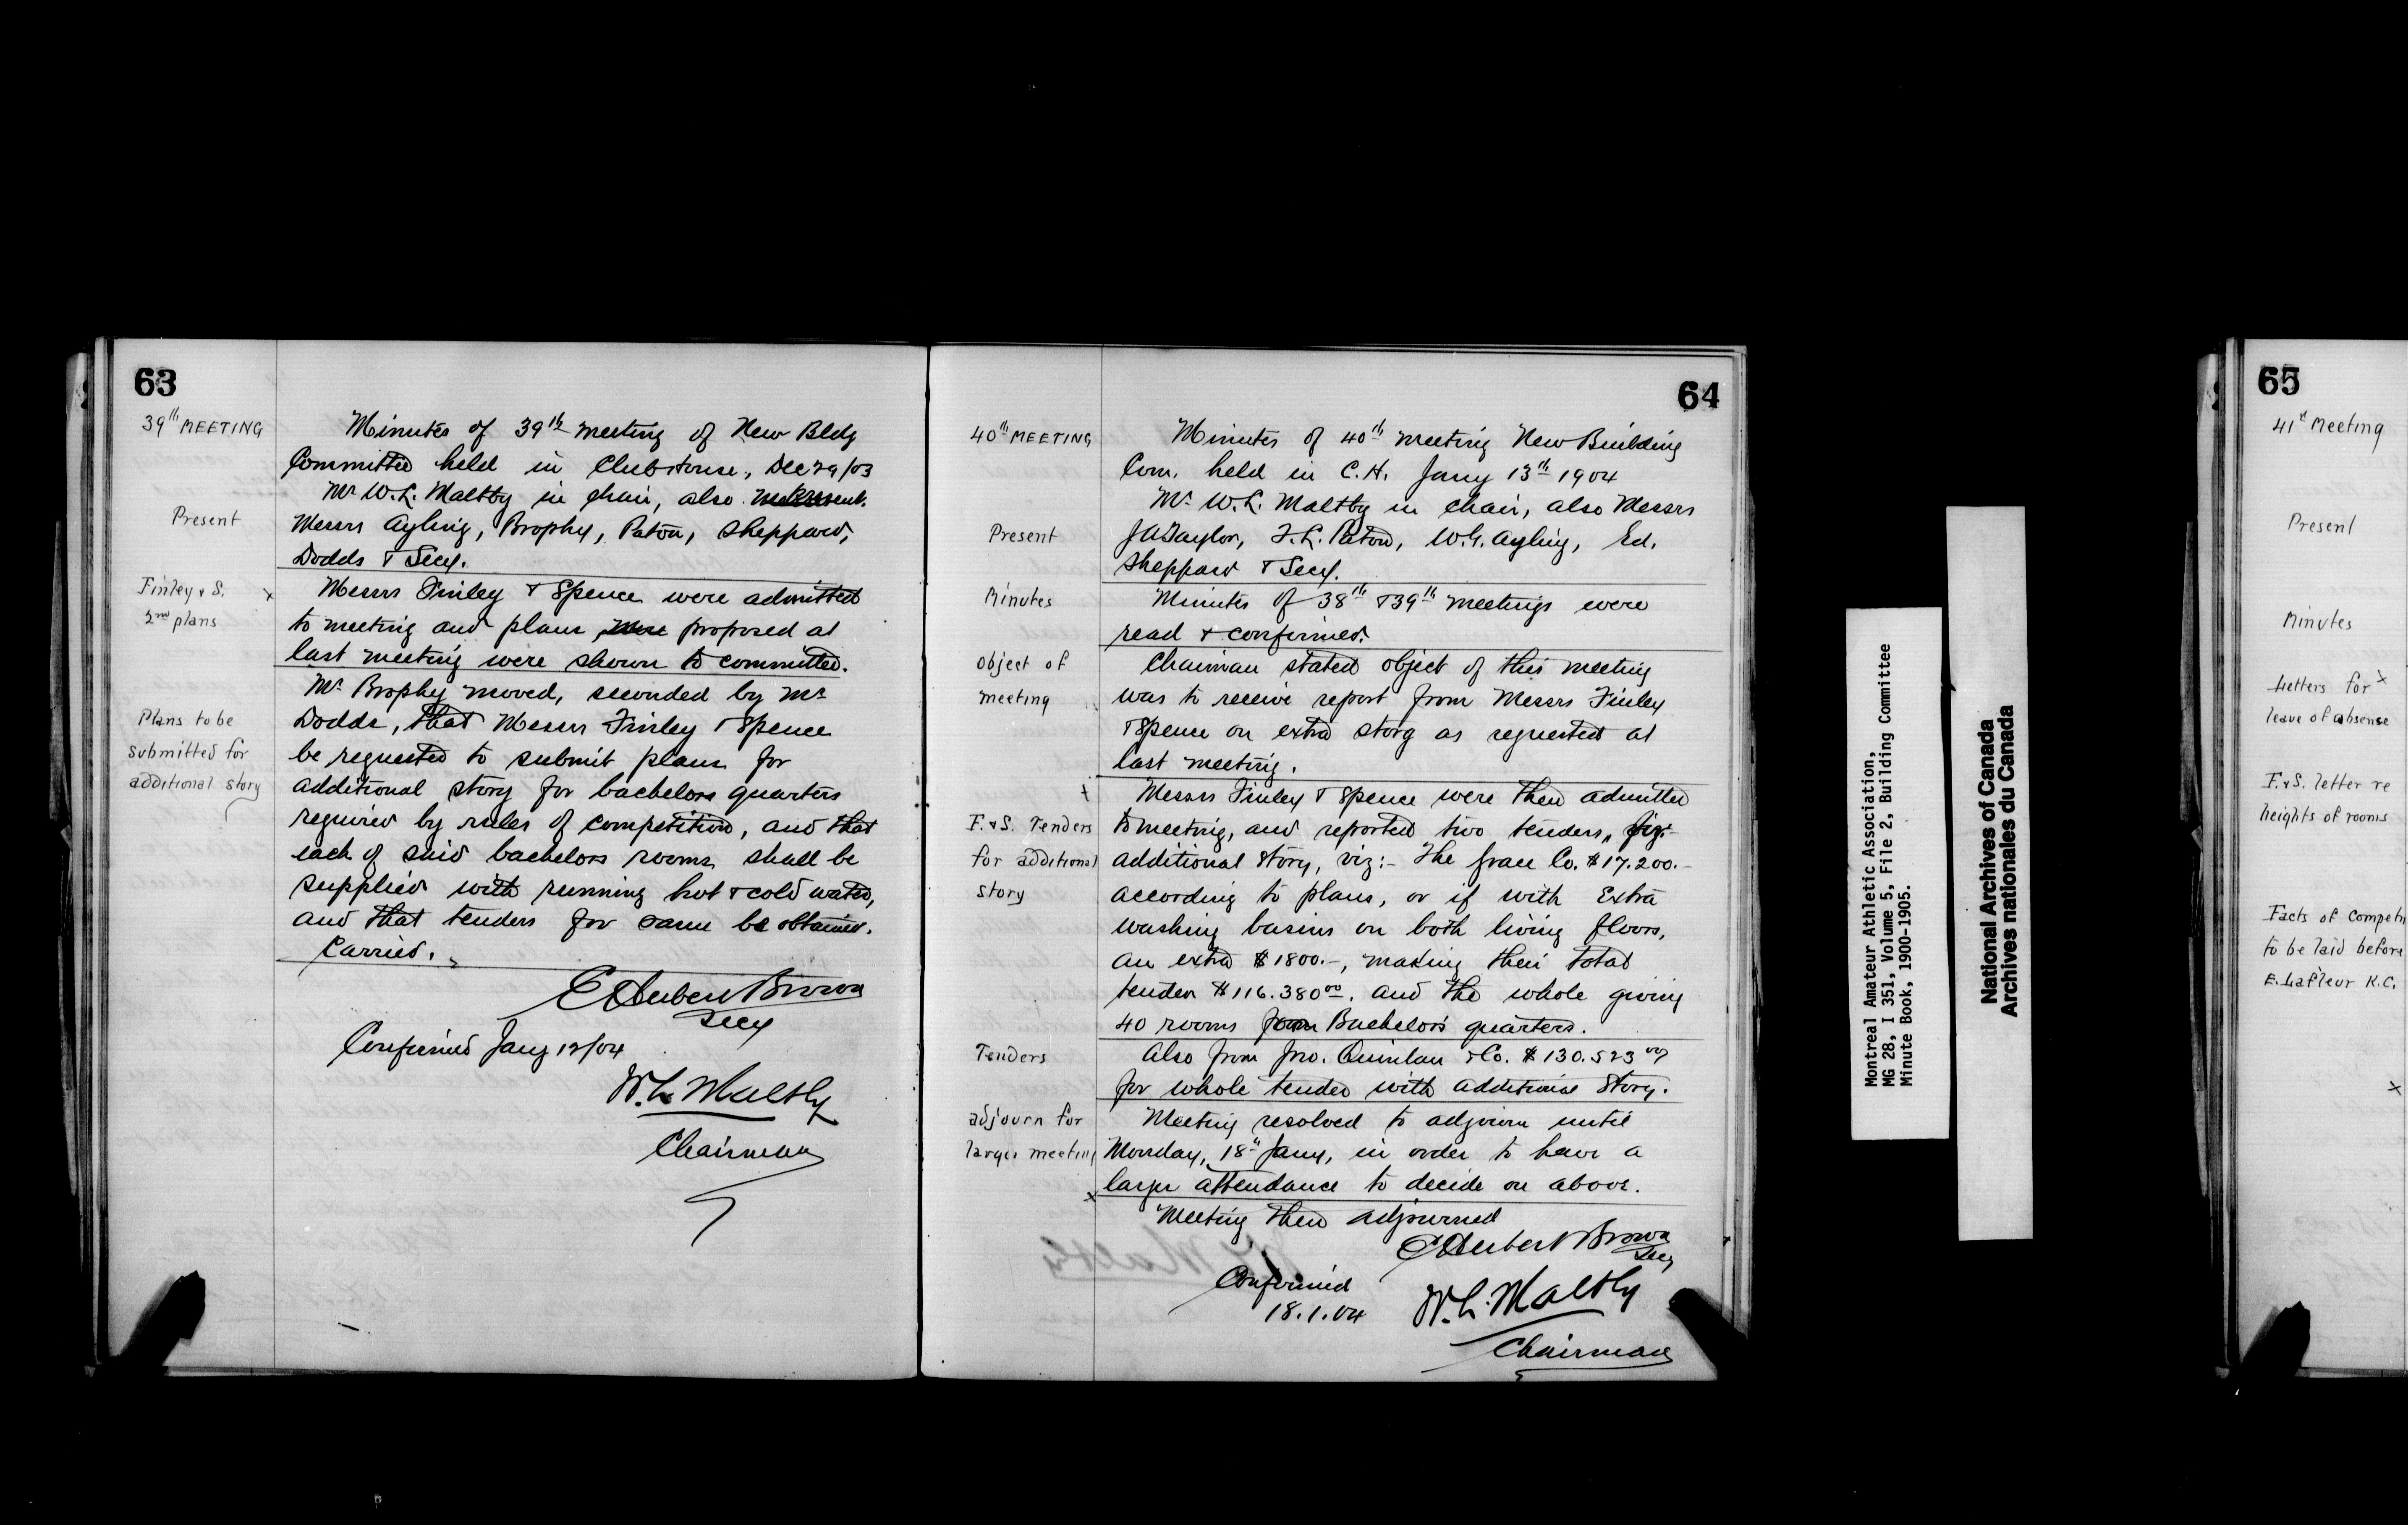 63
39th MEETING
Minutes of 39th meeting of New Bldg
Committee held in Clubhouse, Dec 29/03
Mr W. L. Maltby in chair, also
Present
Messrs Ayling, Brophy, Paton, Sheppard,
Dodds & Secy.
Finley & S.
2nd plans
x
Messrs Finley & Spence were admitted
to meeting and plans were proposed at
last meeting were shown to committee.
Mr Brophy moved, seconded by Mr
Plans to be
submitted for
additional story
Dodds, that Messrs Finley & Spence
be requested to submit plans for
additional story for bachelors quarters
required by rules of competition, and that
each of said bachelors rooms shall be
supplied with running hot & cold water,
and that tenders for same be obtained.
Carried.
E Herbert Brown
Secy
Confirmed Jany 12/04
W. L. Maltby
Chairman
64
40th MEETING
Minutes of 40th meeting New Building
Com. held in C. H. Jany 13th 1904
Mr W. L. Maltby in chair, also Messrs
Present
J A Taylor, T. L. Paton, W. G. Ayling, Ed.
Sheppard & Secy.
Minutes
Minutes of 38th & 39th meetings were
read & confirmed.
object of
meeting
Chairman stated object of this meeting
was to receive report from Messrs Finley
& Spence on extra story as requested at
last meeting.
x
Messrs Finley & Spence were then admitted
F. & S. Tenders
for additional
story
to meeting, and reported two tenders,
additional story, viz:- The Co. $17.200.-
according to plans, or if with Extra
washing basins on both living floors,
an extra $1800.-, making their total
tender $116.380 00. and the whole giving
40 rooms Bachelors quarters.
Tenders
Also from Jno. Quinlan & Co. $130.523 00
for whole tender with additional story.
adjourn for
larger meeting
Meeting resolved to adjourn until
Monday, 18th Jany, in order to have a
larger attendance to decide on above.
x
Meeting then adjourned
E Herbert Brown
Secy
Confirmed
18.1.04
W. L. Maltby
Chairman
Montreal Amateur Athletic Association,
MG 28, I 351, Volume 5, File 2, Building Committee
Minute Book, 1900-1905.
National Archives of Canada
Archives nationales du Canada
65
41st Meeting
Present
Minutes
Letters for x
leave of absense
F. & S. letter re
heights of rooms
Facts of
to be laid before
E. Lafleur K.C.
x